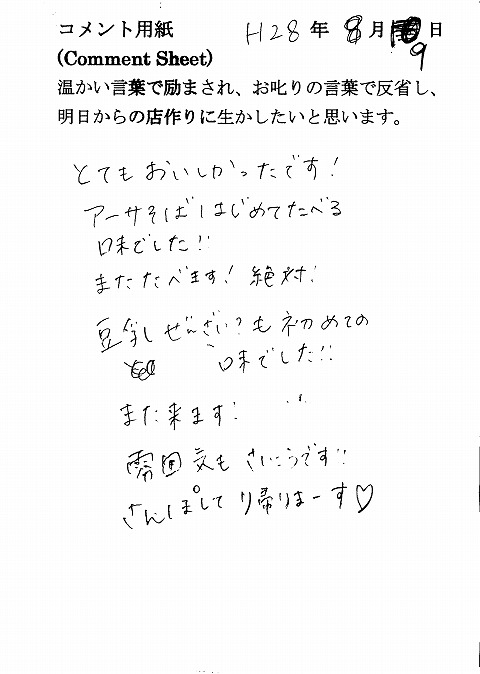 コメント用紙 H28年 8月 9日
(Comment Sheet)
温かい言葉で励まされ、お叱りの言葉で反省し、
明日からの店作りに生かしたいと思います。
とてもおいしかったです!
アーサそばはじめてたべる
味でした!!
またたべます! 絶対!
豆乳しぜんざい?も初めての
味でした!!
また来ます!
雰囲気もさいこうです!!
さんぽして帰りまーす♡